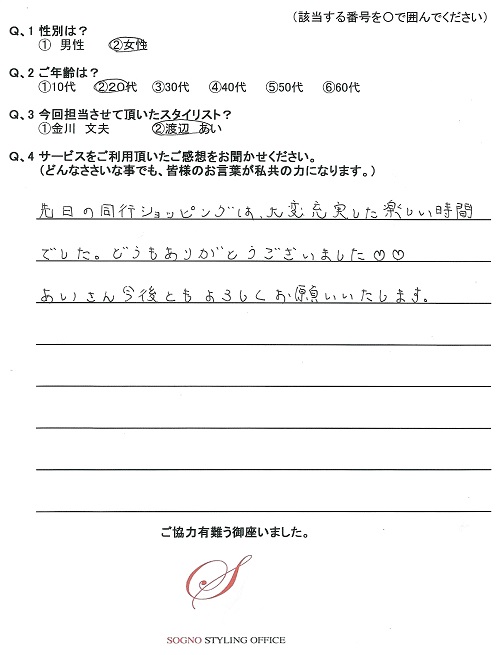 （該当する番号を○で囲んでください）
Q、1 性別は？
① 男性　②女性
Q、2 ご年齢は？
①10代　②20代　③30代　④40代　⑤50代　⑥60代
Q、3 今回担当させて頂いたスタイリスト？
①金川　文夫　②渡辺　あい
Q、4 サービスをご利用頂いたご感想をお聞かせください。
（どんなささいな事でも、皆様のお言葉が私共の力になります。）
先日の同行ショッピングは、大変充実した楽しい時間
でした。どうもありがとうございました♡♡
あいさん今後ともよろしくお願いいたします。
ご協力有難う御座いました。
S
SOGNO STYLING OFFICE